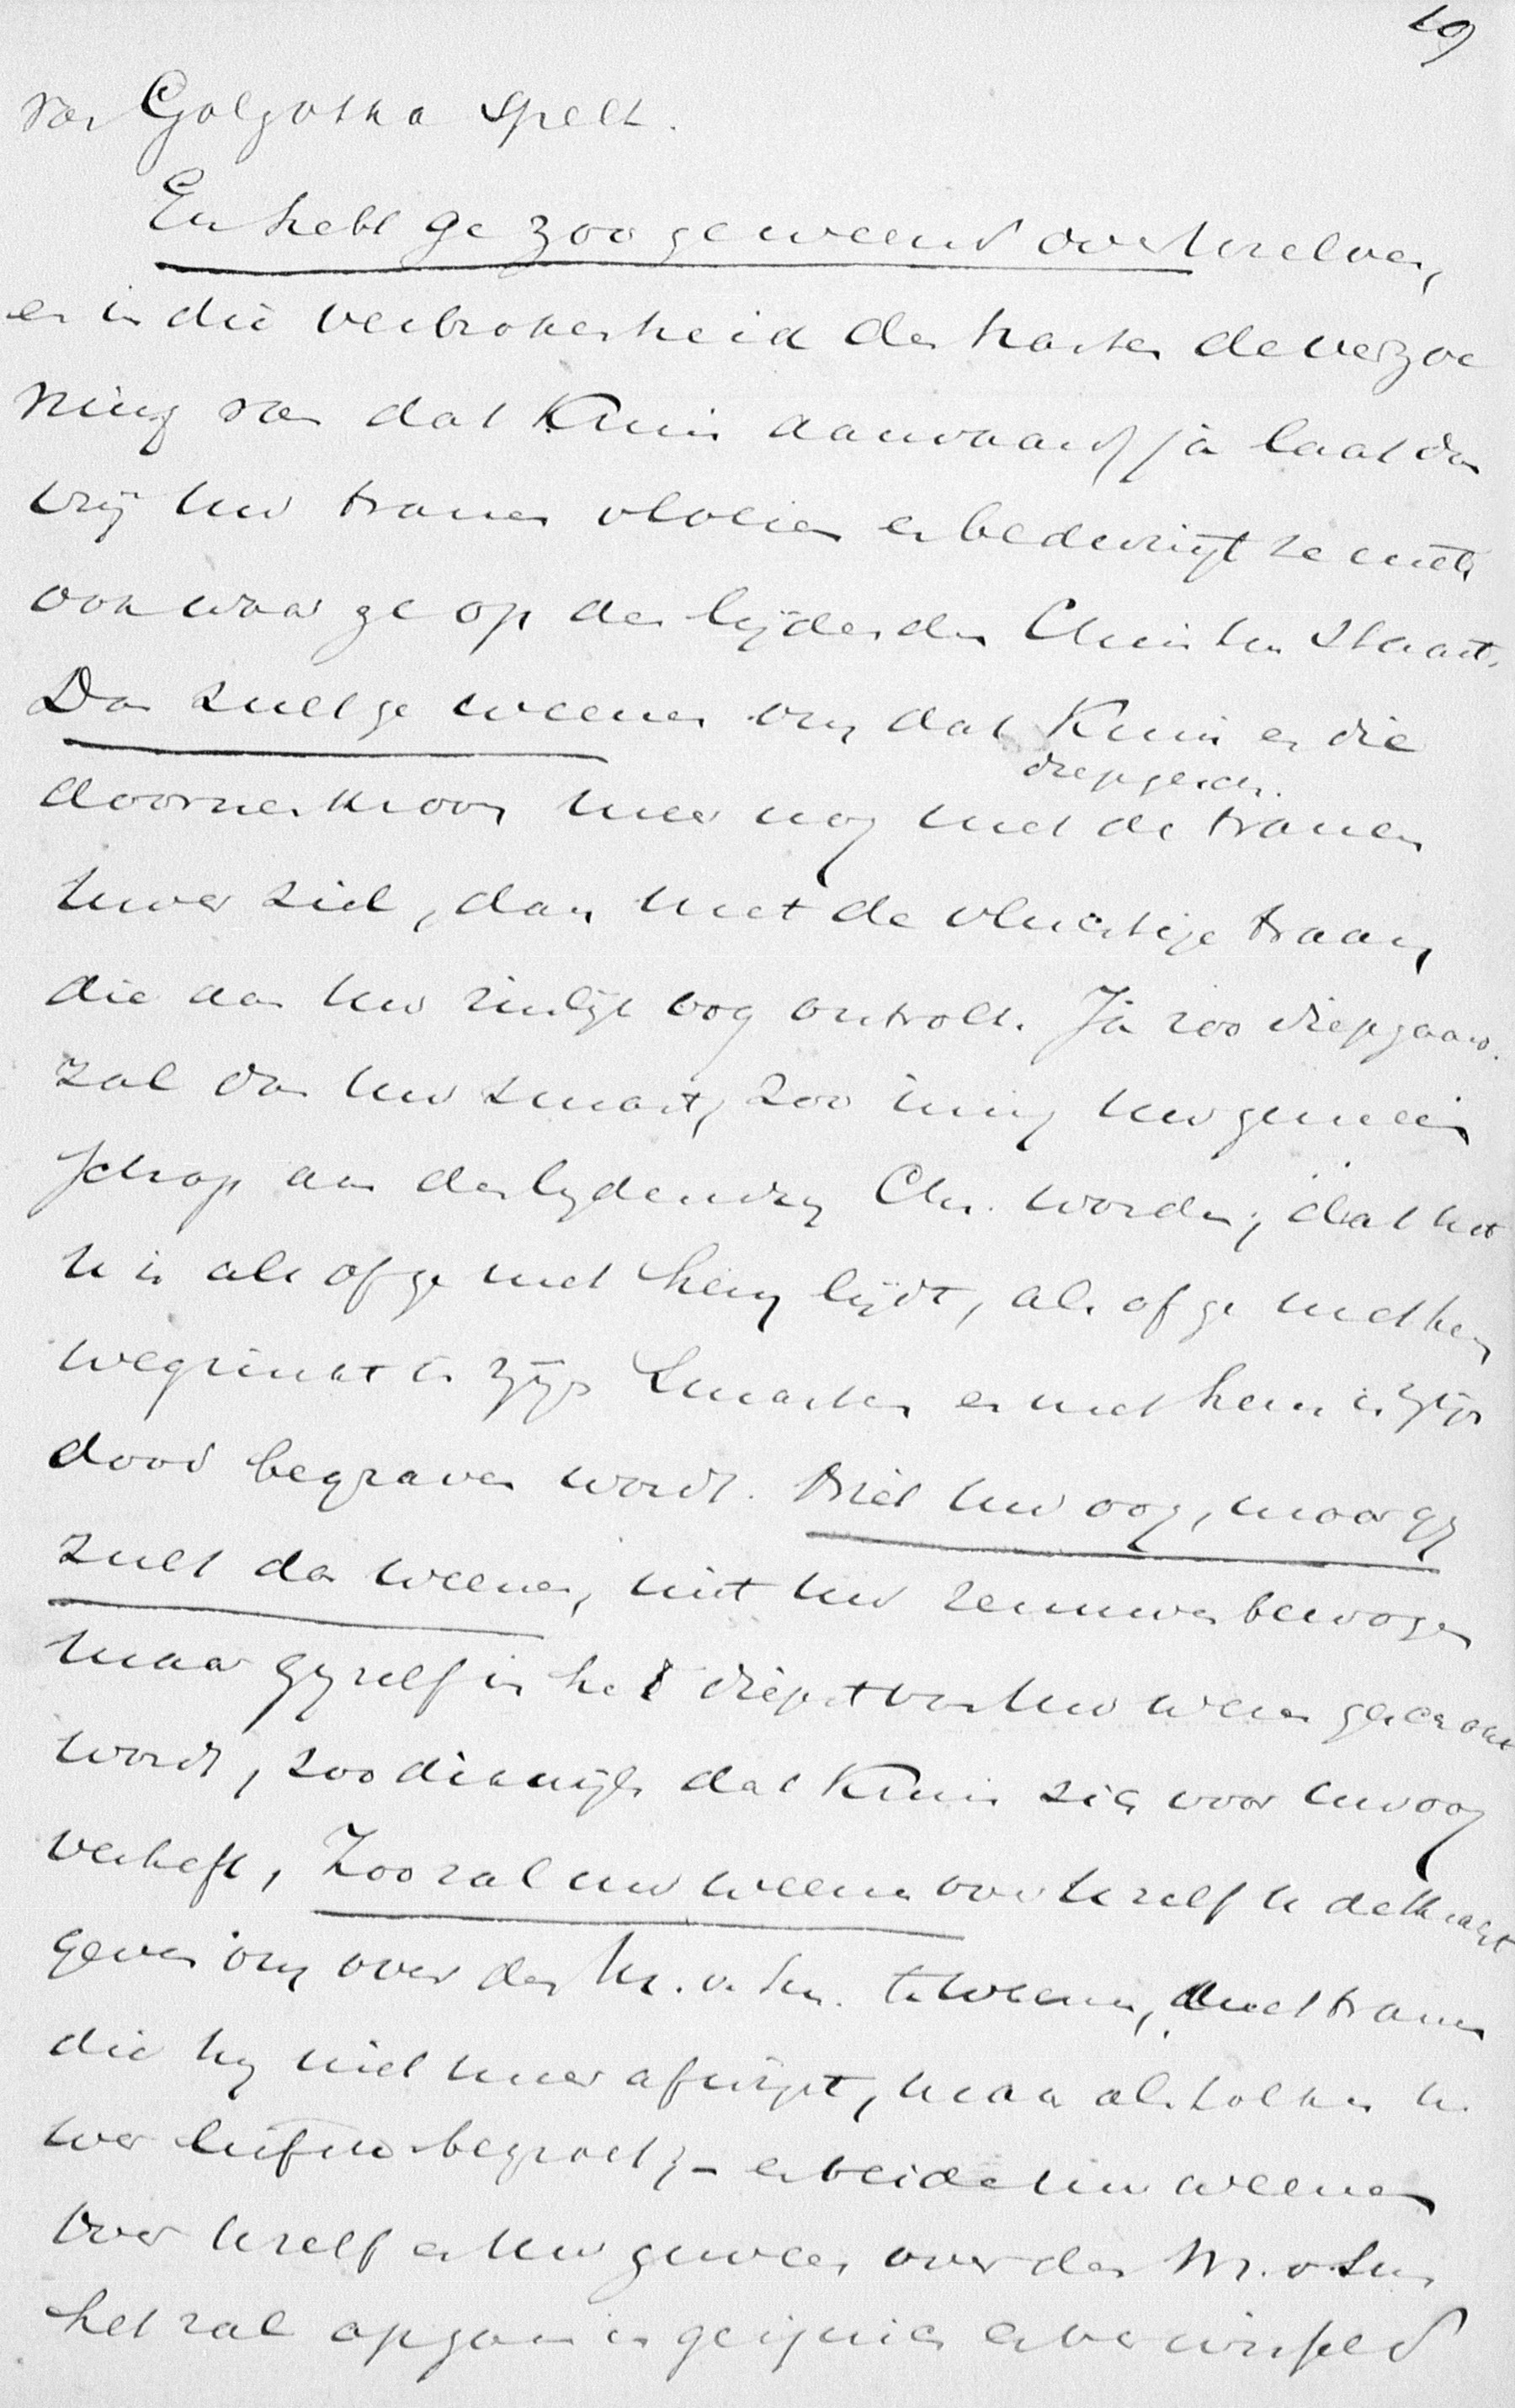 19
van Golgotha spelt.
En hebt ge zoo geweend over uzelven,
en in die verbrokenheid des harten de verzoe
ning van dat Kruis aanvaard, ja laat dan
vrij uw tranen vloeien en bedwingt ze niet,
ook waar ge op den lijdenden Christus staart.
Dan zult ge weenen om dat Kruis en die
diepgaan.
doornenkroon meer nog met de tranen
uwer ziel, dan met de vluchtige traan,
die aan uw zinlijk oog ontrolt. Ja zoo diepgaand.
zal dan uw smart, zoo innig uw gemein
schap aan des lydenden Chr. worden, dat het
u is als of ge met hem lijdt, als of ge met hem
wegzinkt in zijn smarten en met hem in zijn
dood begraven wordt. Niet uw oog, maar gy
zult dan weenen, niet uw zenuwen bewogen
maar gyzelf in het diepst van uw wezen geschokt
wordt, zoo dikwijls dat Kruis zich voor uw oog
verheft, Zoo zal uw weenen over u zelf u de kracht
geven om over den M. v. Sm. te weenen, met tranen
die hy niet meer afwijst, maar als tolken u.
wer liefde begroet, – en beide uw weenen
over uzelf en uw geween over den M. v. Sm
het zal opgaan in geijnich en verwisseld